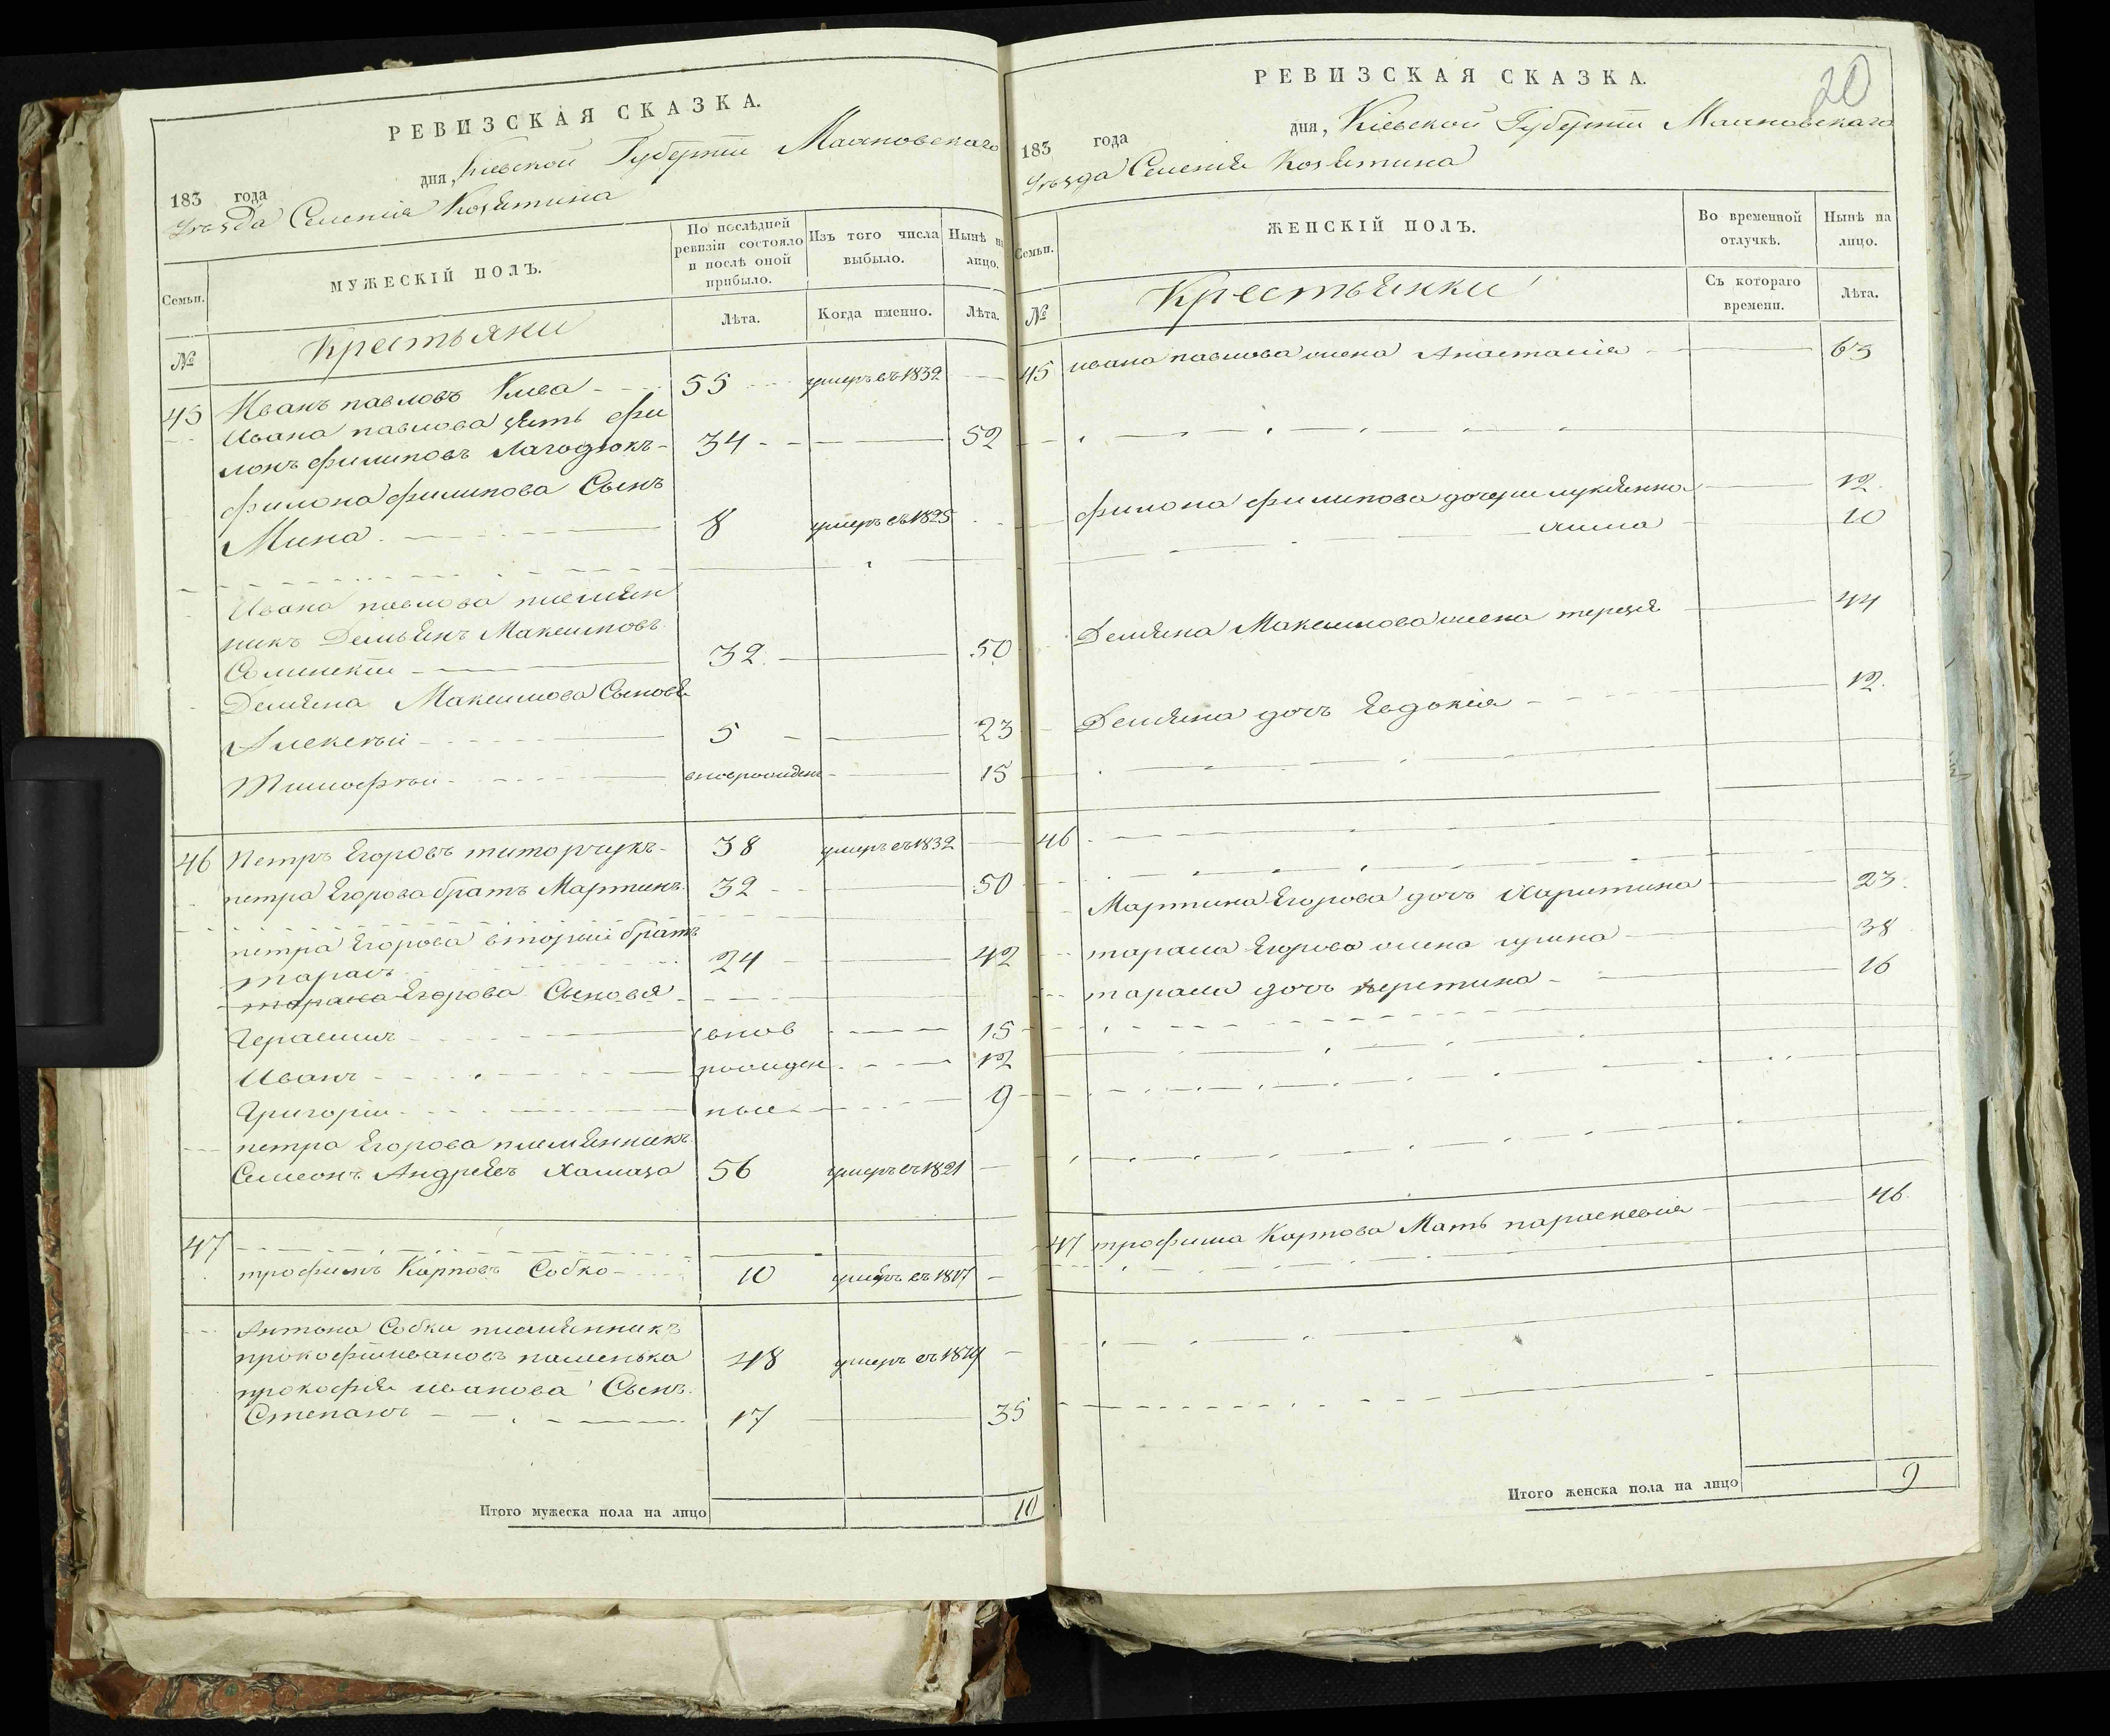 РЕВИЗСКАЯ СКАЗКА.
183 года дня, Кіевской Губерніи Махновскаго
Уѣзда Селенія Козятина
Семьи.
МУЖЕСКІЙ ПОЛЪ.
По послѣдней ревизіи состояло и послѣ оной прибыло.
Изъ того числа выбыло.
Нынѣ на лицо.
№
Крестьяни
Лѣта.
Когда именно.
Лѣта.
45 Иванъ павловъ Кива 55 умеръ въ 1832
Ивана павлова зять фи
лонъ филиповъ Лагодюкъ 34 52
филона филипова Сынъ
Мина 8 умеръ въ 1825
Ивана павлова племян
никъ Демьянъ Максимовъ
32 50
Демяна Максимова Сыновя
Алексѣй 5 23
Тимофѣй вновърожден 15
46 Петръ Егоровъ титорчукъ 38 умеръ въ 1832
петра Егорова братъ Мартинъ 32 50
петра Егорова вторый братъ
тарасъ 24 42
тараса Егорова Сыновя
Герасимъ внов 15
Иванъ рожден 12
Григорій ные 9
петра Егорова племянникъ
Семеонъ Андреевъ Хамаза 56 умеръ въ 1821
47
трофимъ Карповъ Собко 10 умеръ въ 1817
Антона Собки племянникъ
прокофій ивановъ 48 умеръ въ
прокофія иванова Сынъ
Степанъ 17 35
Итого мужеска пола на лицо 10
20
РЕВИЗСКАЯ СКАЗКА.
183 года дня, Кіевской Губерніи Махновскаго
Уѣзда Селенія Козятина
Семьи.
ЖЕНСКІЙ ПОЛЪ.
Во временной отлучкѣ.
Нынѣ на лицо.
№
Крестьянки
Съ котораго времени.
Лѣта.
45 ивана павлова жена Анастасія 63
филона филипова дочери лукіянна 12
анна 10
Демяна Максимова жена терезя 44
Демяна дочъ Евдокія 12
46
Мартина Егорова дочъ Харитина 23
тараса Егорова жена ирина 38
тараса дочъ 16
47 трофима Карпова Мать параскевія 46
Итого женска пола на лицо 9